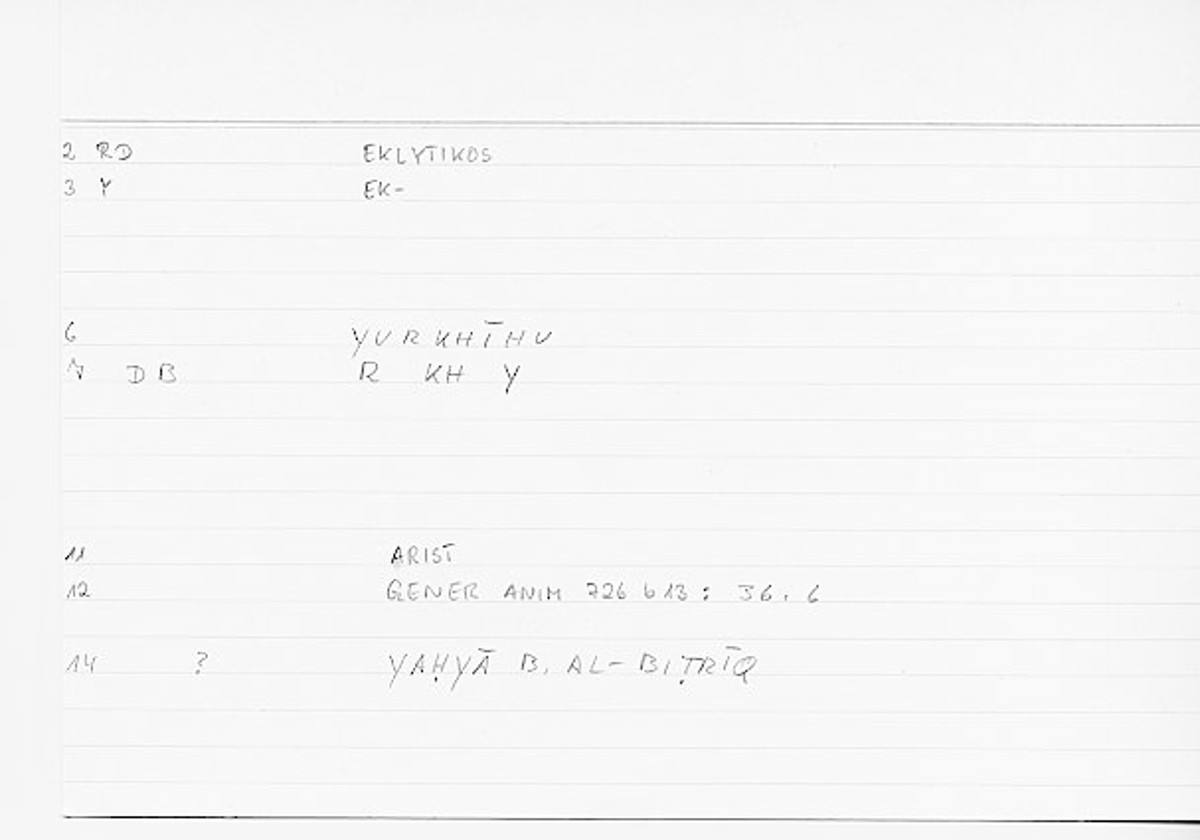 2 RD EKLYTIKOS
3 Y EK-
6 YURKHĪHU
7 DB R KH Y
11 ARIST
12 GENER ANIM 726 b 13 : 36. 6
14 ? YAḤYĀ B. AL-BIṬRĪQ